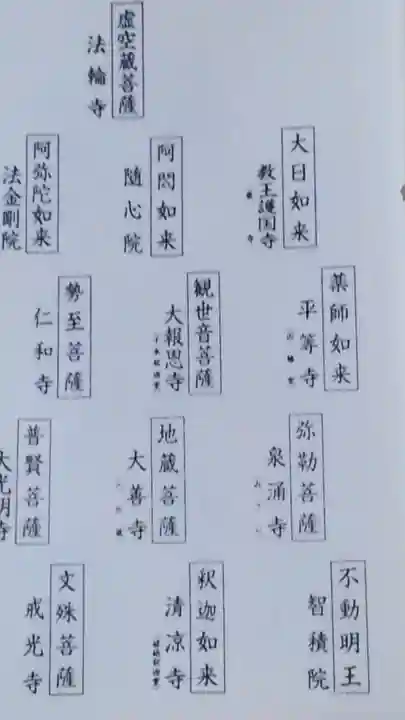 虚空蔵菩薩
法輪寺
大日如来
教王護国寺
阿閦如来
随心院
阿弥陀如来
法金剛院
薬師如来
平等寺
観世音菩薩
大報恩寺
千本釈迦堂
勢至菩薩
仁和寺
弥勒菩薩
泉涌寺
地蔵菩薩
大善寺
普賢菩薩
大光明寺
不動明王
智積院
釈迦如来
清凉寺
嵯峨釈迦堂
文殊菩薩
戒光寺